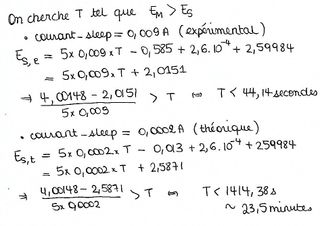 On cherche T tel que E_M > E_S
• courant_sleep = 0,009A (expérimental)
E_S,e = 5x 0,009 x T - 0,585 + 2,6.10⁻⁴ + 2,59984
= 5x 0,009 x T + 2,0151
⇒ 4,00148 - 2,0151 / 5x 0,009 > T ⇔ T < 44,14 secondes
• courant_sleep = 0,0002A (théorique)
E_S,t = 5x 0,0002 x T - 0,013 + 2,6.10⁻⁴ + 259984
= 5x 0,0002 x T + 2,5871
⇒ 4,00148 - 2,5871 / 5x 0,0002 > T ⇔ T < 1414,38s
~ 23,5 minutes